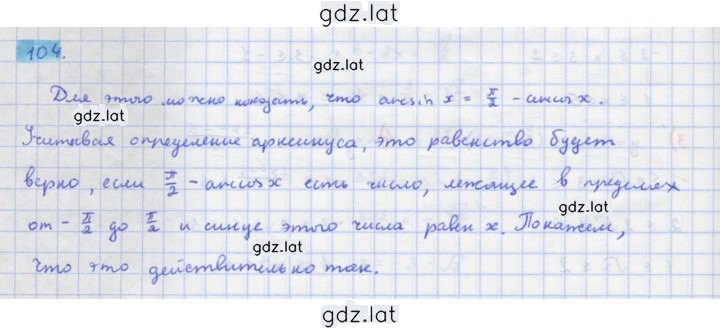 gdz.lat
104.
gdz.lat
Для этого можно показать, что arcsin x = π/2 - arccos x.
gdz.lat
Учитывая определение арксинуса, это равенство будет
верно, если π/2 - arccos x есть число, лежащее в пределах
gdz.lat
от - π/2 до π/2 и синус этого числа равен x. Покажем,
gdz.lat
что это действительно так.
gdz.lat